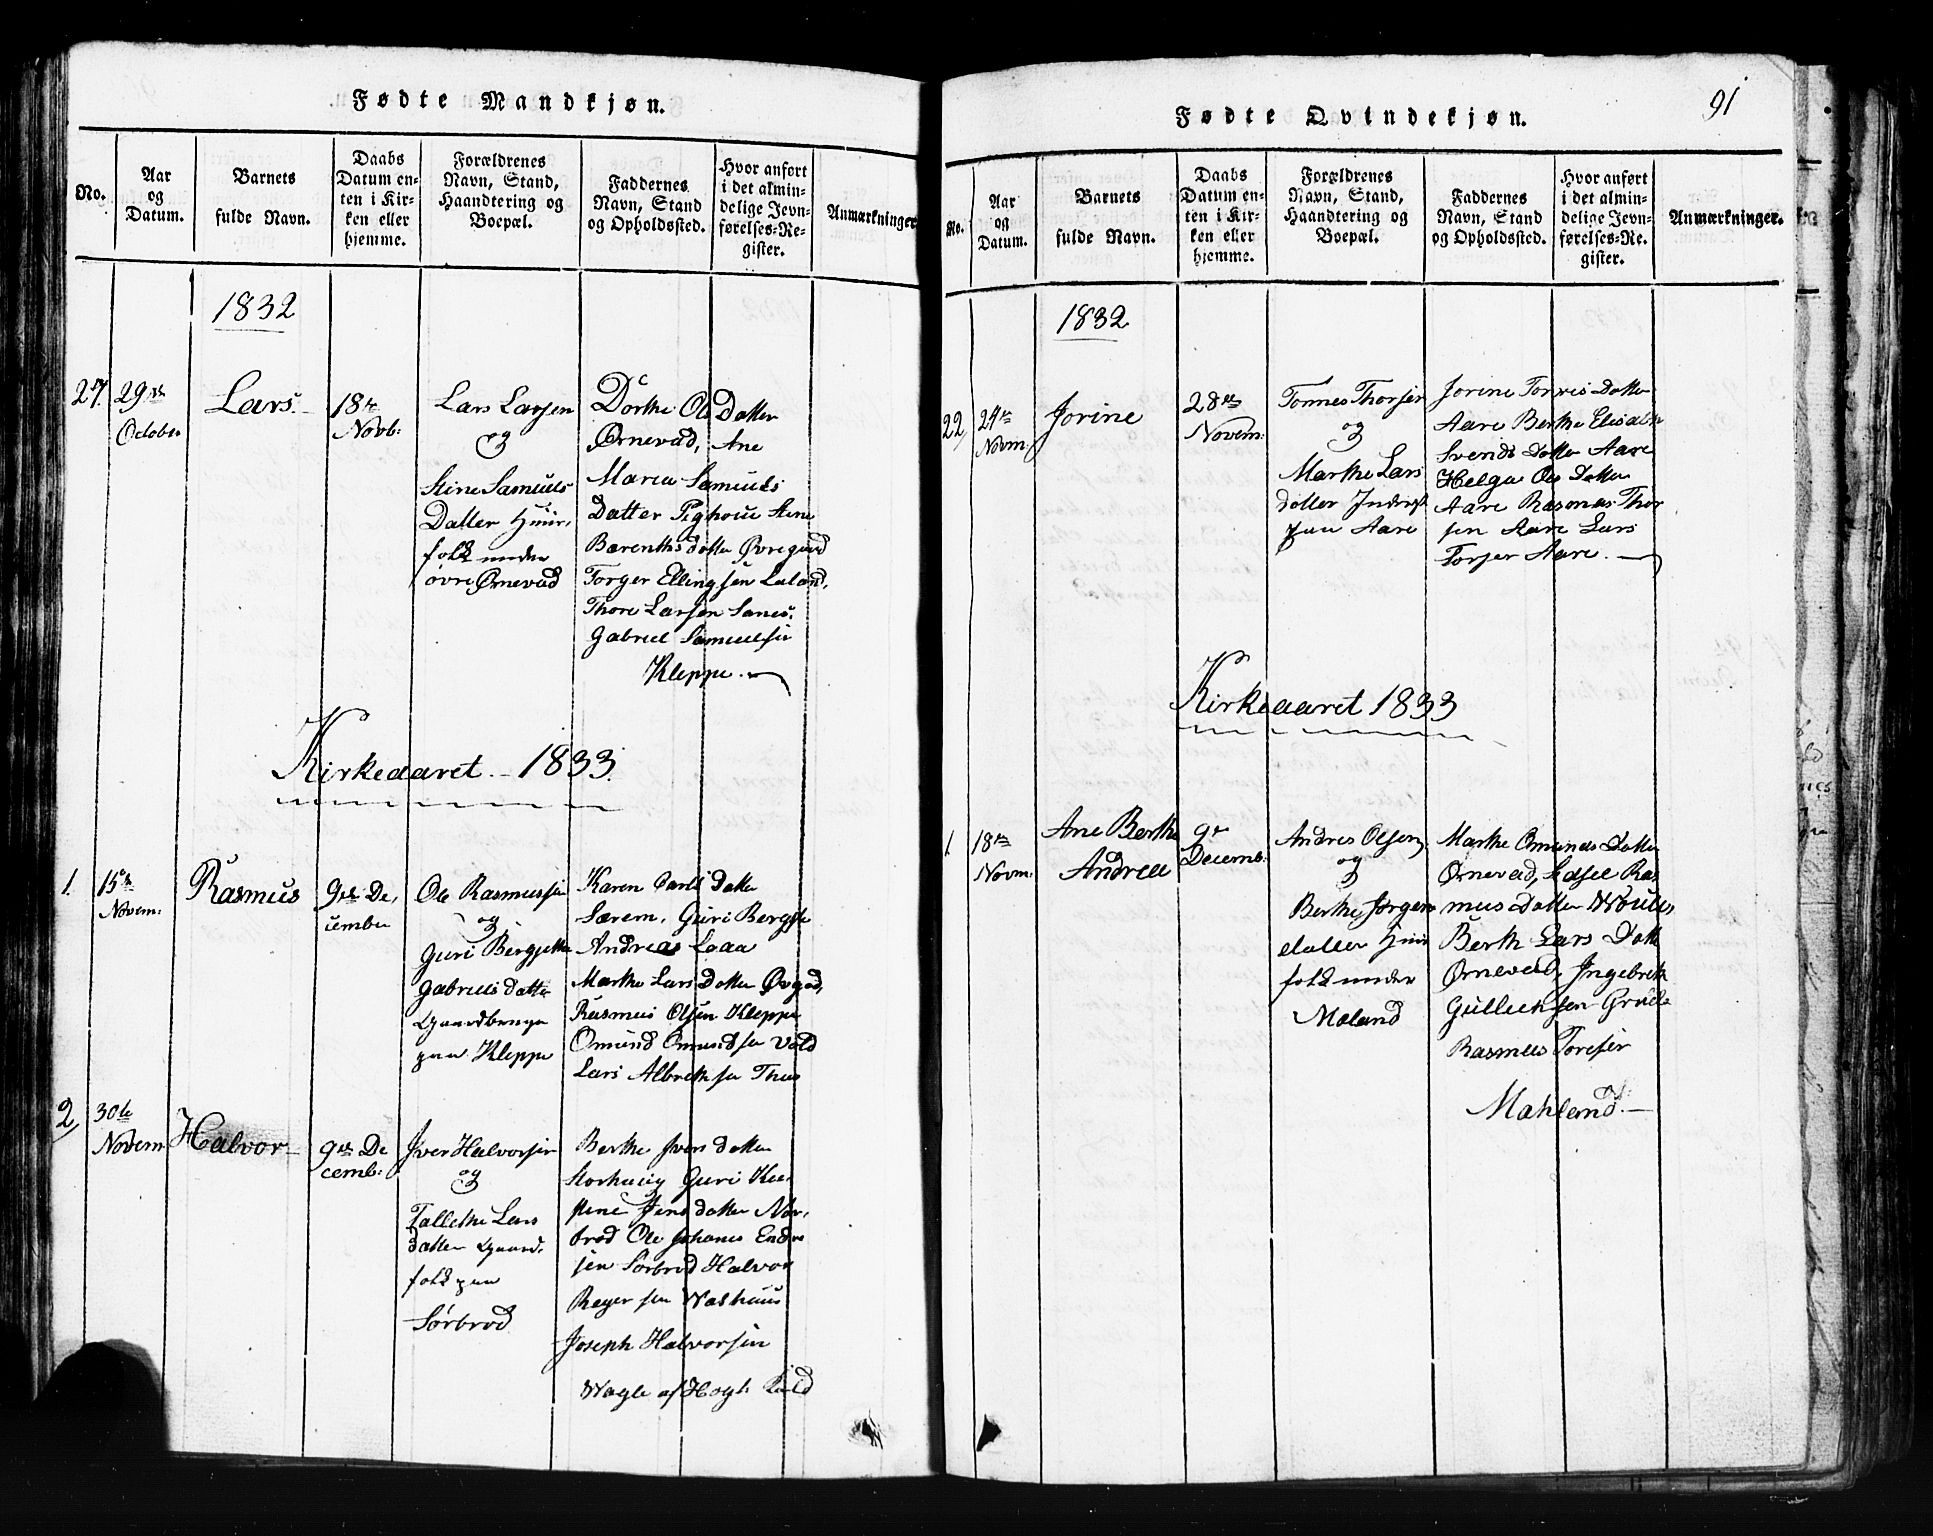 Fødte Mandkjøn.
No.
Aar
og
Datum.
Barnets
fulde Navn.
Daabs
Datum en-
ten i Kir-
ken eller
hjemme.
Forældrenes
Navn, Stand,
Haandtering og
Boepæl.
Faddernes
Navn, Stand
og Opholdssted.
Hvor anført
i det almin-
delige Jevn-
førelses-Re-
gister.
Anmærkninger
1832
27.
29de
October
Lars.
18de
Novb:
Lars Larsen
og
Stine Samuels
Datter
folk under
øvre Ørnevad
Dorthe Ols Datter
Ørnevad, Ane
Maria Samuels
Datter Tighoue Stine
Barenths datter Øvregaard
Torger Ellingsen Laland,
Thore Larsen Sanes.
Gabriel Samuelsen
Kleppe.
Kirkeaaret 1833.
1.
15de
Novem:
Rasmus
9de De,
cember
Ole Rasmussen
og
Guri Bergjette
Gabriels datter
paa Kleppe
Karen Carls datter
Særem, Guri Bergjte
Andreas Loaa
Marthe Lars Datter
Rasmus Olsen Kleppe
Omund Omundsen Vold
Lars Albrethsen Thus
2
30te
Novem
Halvor
9de De
cemb:
Iver Halvorsen
og
Tallethe Lars
datter Gaard,
folk paa
Sørbrod
Berthe Ivers datter
Storhoug Guri
Jens datter Nor,
brod Ole Johanes Endre
sen Sørbrod Halvor
Reyer sen Washuus
Joseph Halvorsen
Wagle af Hogl.
91
Fødte Qvindekjøn.
No.
Aar
og
Datum.
Barnets
fulde Navn.
Daabs
Datum en-
ten i Kir-
ken eller
hjemme.
Forældrenes
Navn, Stand,
Haandtering og
Boepæl.
Faddernes
Navn, Stand
og Opholdssted.
Hvor anført
i det almin-
delige Jevn-
førelses-Re-
gister.
Anmærkninger.
1832
22
24de
Novm:
Jorine
28de
Novem:
Tonnes Thorsen
og
Marthe Lars
datter
paa Aare
Jorine Torres Datter
Aare Berthe Elisabeth
Svends Datter Aare
Helga Ols Datter
Aare Rasmus Thor
sen Aare Lars
Torser Aare.
Kirkeaaret 1833
1.
18de
Novm:
Ane Berthe
Andrea
9de
Decemb:
Andres Olsen
og
Berthe Jørgens
datter
folk under
Mæland
Marthe Omunds Datter
Ørnevad, Ras
mus datter
Berthe Lars Datter
Ørnevad, Ingebreth
Gulleiksen Grude
Rasmus Toresen
Mahland.